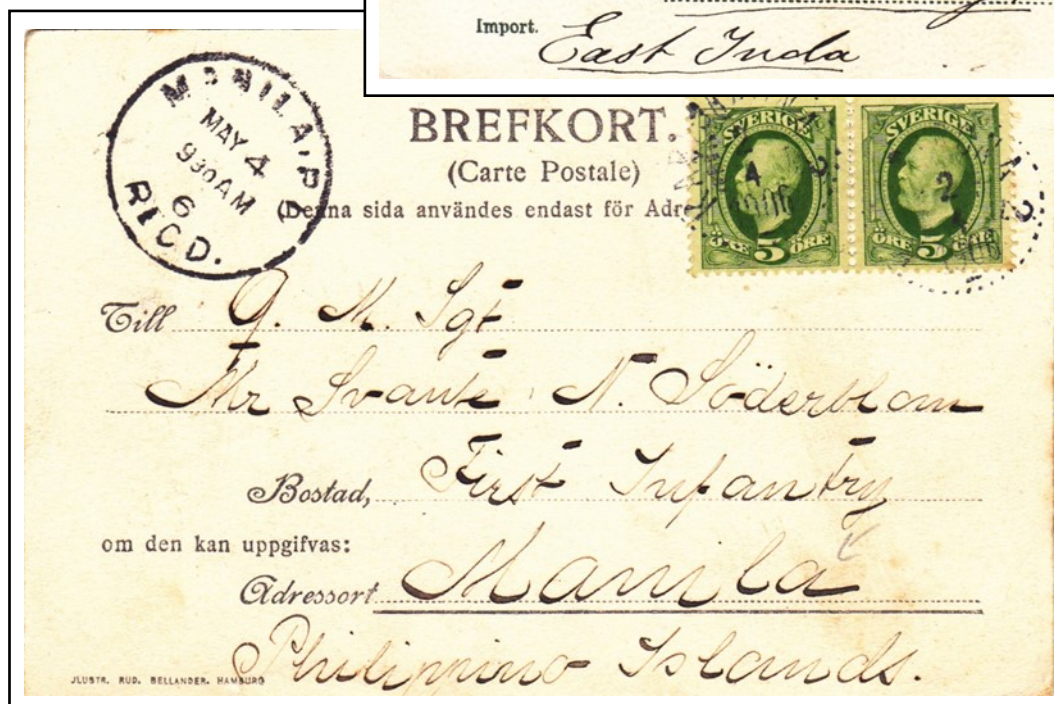 Import.
East Inda
MANILA, P.I.
MAY 4
930 AM
6
REC'D.
BREFKORT.
(Carte Postale)
(Denna sida användes endast för Adre
SVERIGE
5 ÖRE
SVERIGE
ÖRE 5 ÖRE
Till Q. M. Sgt
Mr Svante N. Söderblom
Bostad, First Infantry
om den kan uppgifvas:
Adressort Manila
Philippino Islands.
JLUSTR. RUD. BELLANDER. HAMBURG